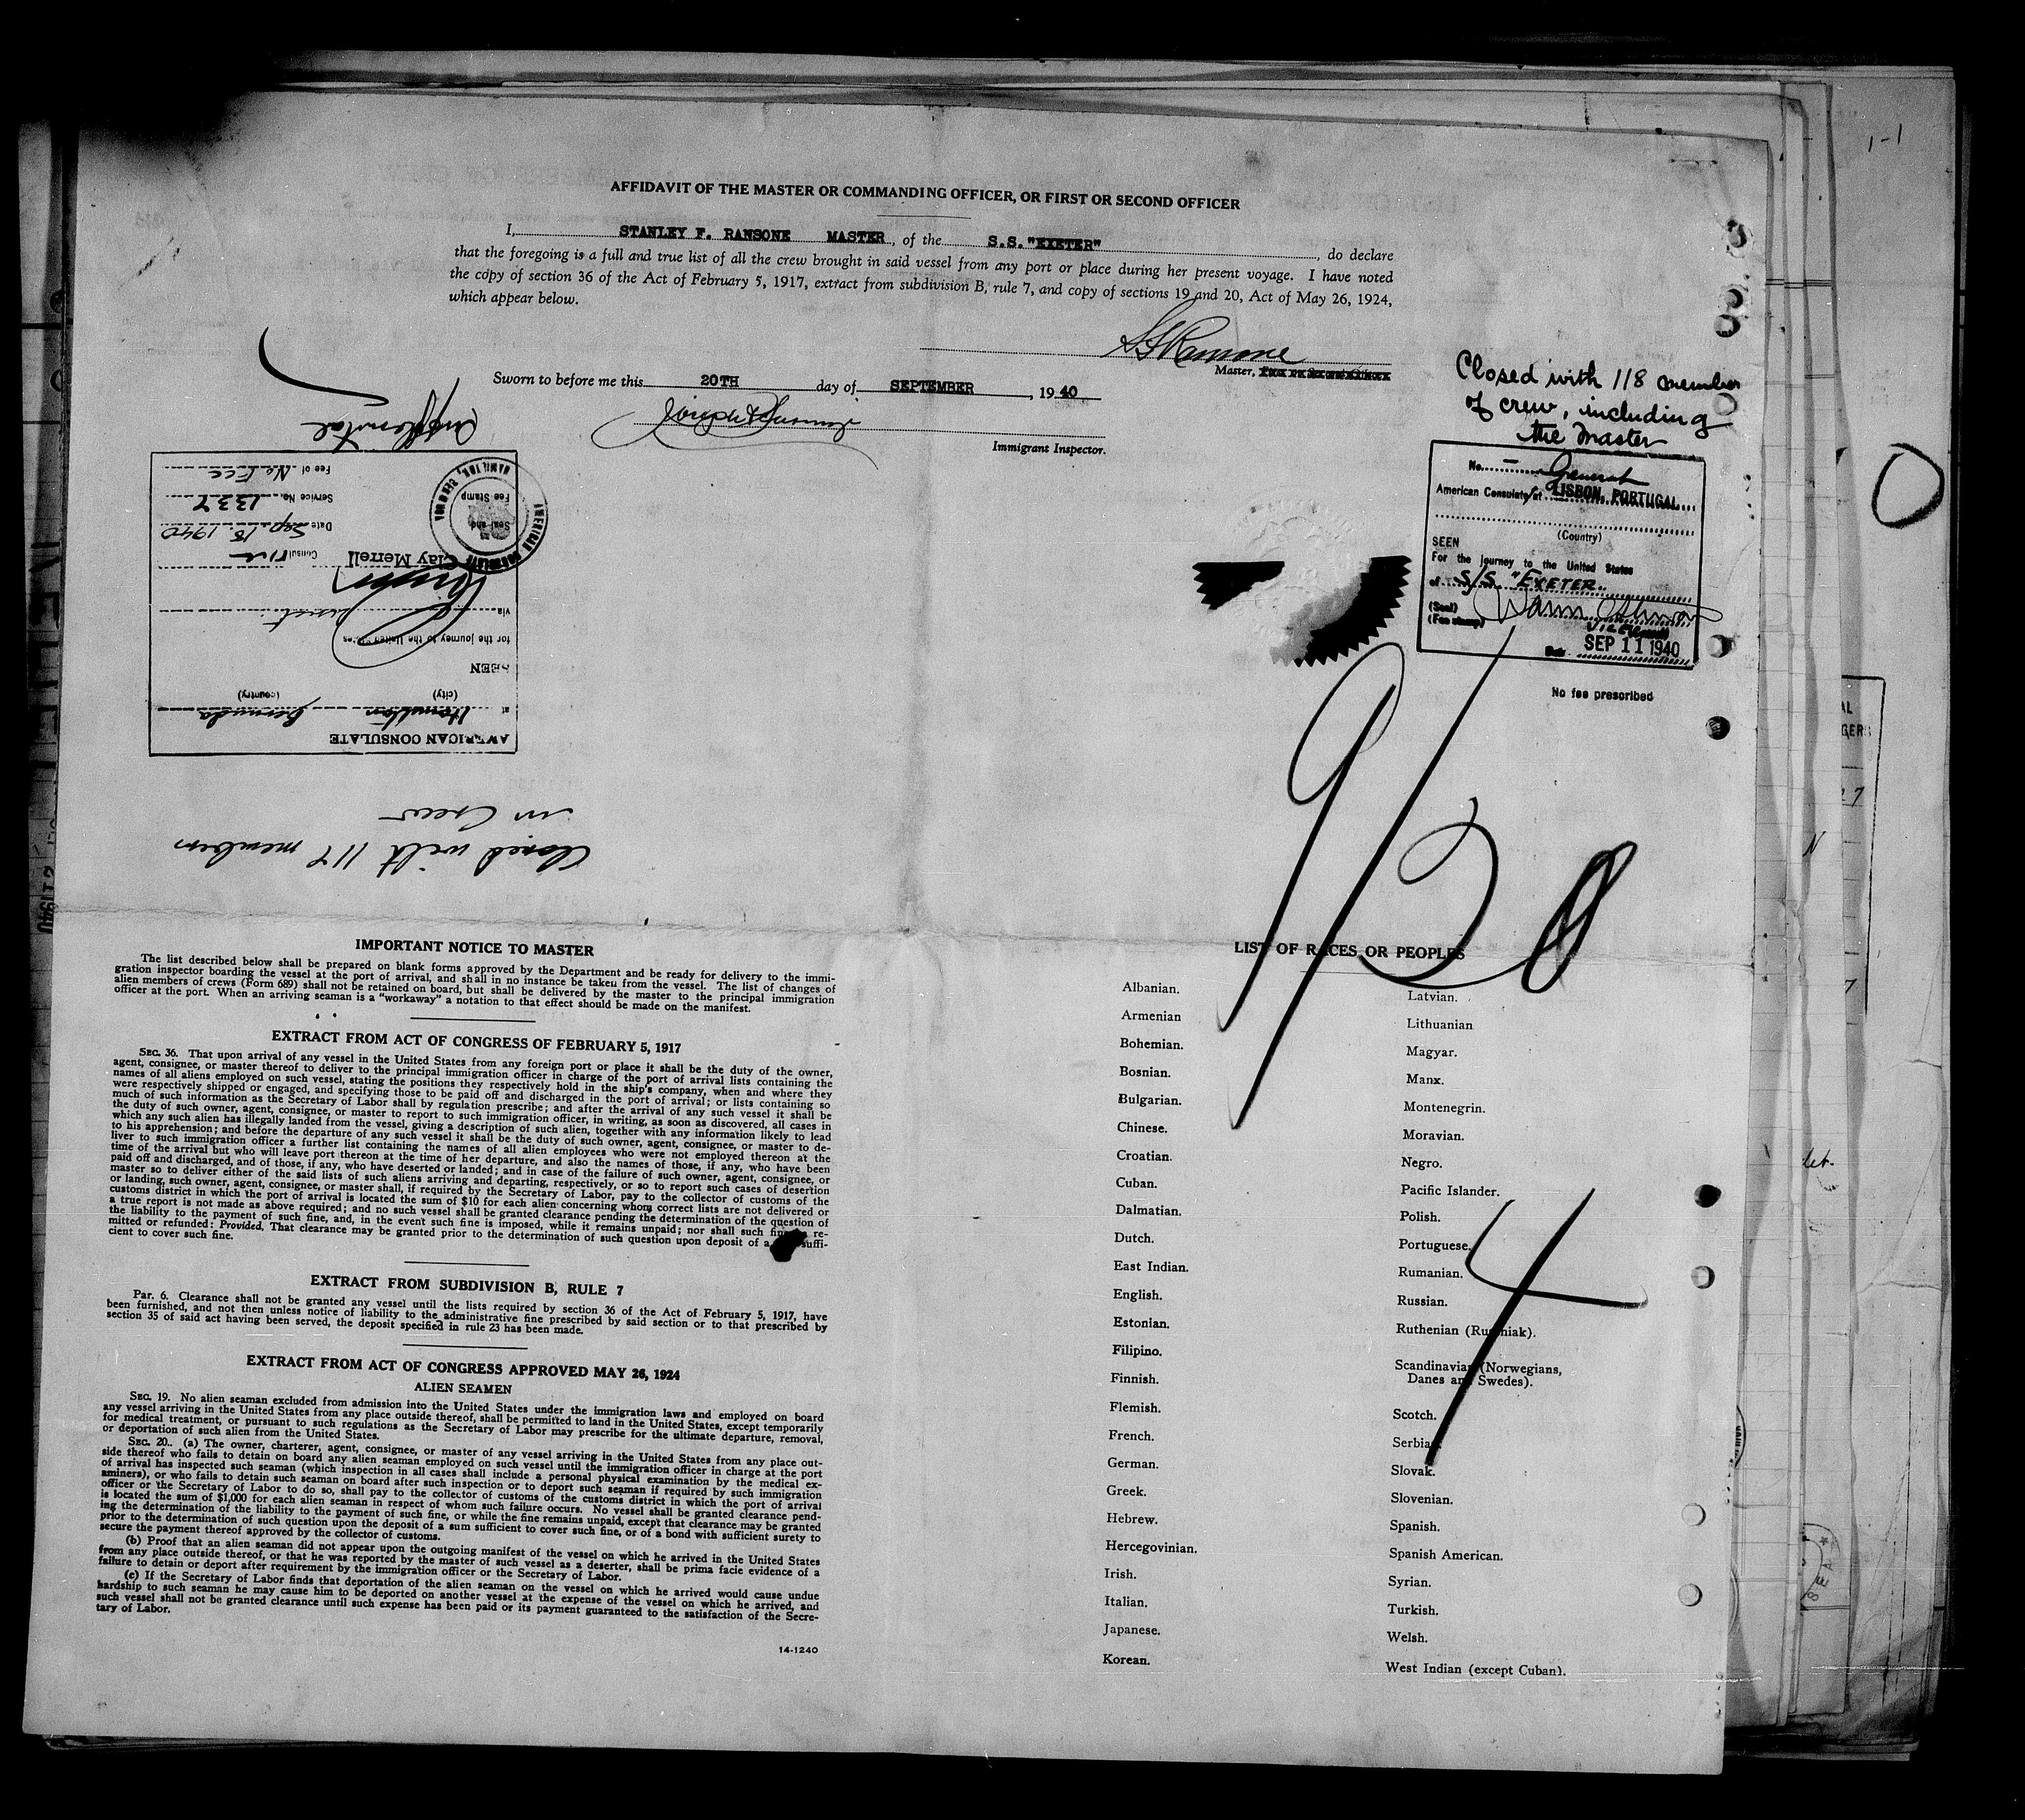 1-1
AFFIDAVIT OF THE MASTER OR COMMANDING OFFICER, OR FIRST OR SECOND OFFICER
I, STANLEY F. RANSONE MASTER, of the S.S."EXETER", do declare
that the foregoing is a full and true list of all the crew brought in said vessel from any port or place during her present voyage. I have noted
the copy of section 36 of the Act of February 5, 1917, extract from subdivision B, rule 7, and copy of sections 19 and 20, Act of May 26, 1924,
which appear below.
SFRansone
Master,
Sworn to before me this 20TH day of SEPTEMBER, 1940
Immigrant Inspector.
Closed with 118 member
of crew, including
the Master
No. — General
American Consulate at LISBON, PORTUGAL
(Country)
SEEN
For the journey to the United States
of S/S "EXETER"
(Seal)
(Fee stamp)
Vice Consul
Date SEP 11 1940
No fee prescribed
AMERICAN CONSULATE
at Hamilton Bermuda
(city) (country)
SEEN
for the journey to the United States
via
Clay Merrell
Vice Consul
Date Sep 18, 1940
Service No. 1337
Fee of No Fee
Seal and
Fee Stamp
AMERICAN CONSULATE
HAMILTON, BERMUDA
Closed with 118 members
in Crew
9/20
4
IMPORTANT NOTICE TO MASTER
The list described below shall be prepared on blank forms approved by the Department and be ready for delivery to the immi-
gration inspector boarding the vessel at the port of arrival, and shall in no instance be taken from the vessel. The list of changes of
alien members of crews (Form 689) shall not be retained on board, but shall be delivered by the master to the principal immigration
officer at the port. When an arriving seaman is a "workaway" a notation to that effect should be made on the manifest.
EXTRACT FROM ACT OF CONGRESS OF FEBRUARY 5, 1917
SEC. 36. That upon arrival of any vessel in the United States from any foreign port or place it shall be the duty of the owner,
agent, consignee, or master thereof to deliver to the principal immigration officer in charge of the port of arrival lists containing the
names of all aliens employed on such vessel, stating the positions they respectively hold in the ship's company, when and where they
were respectively shipped or engaged, and specifying those to be paid off and discharged in the port of arrival; or lists containing so
much of such information as the Secretary of Labor shall by regulation prescribe; and after the arrival of any such vessel it shall be
the duty of such owner, agent, consignee, or master to report to such immigration officer, in writing, as soon as discovered, all cases in
which any such alien has illegally landed from the vessel, giving a description of such alien, together with any information likely to lead
to his apprehension; and before the departure of any such vessel it shall be the duty of such owner, agent, consignee, or master to de-
liver to such immigration officer a further list containing the names of all alien employees who were not employed thereon at the
time of the arrival but who will leave port thereon at the time of her departure, and also the names of those, if any, who have been
paid off and discharged, and of those, if any, who have deserted or landed; and in case of the failure of such owner, agent, consignee, or
master so to deliver either of the said lists of such aliens arriving and departing, respectively, or so to report such cases of desertion
or landing, such owner, agent, consignee, or master shall, if required by the Secretary of Labor, pay to the collector of customs of the
customs district in which the port of arrival is located the sum of $10 for each alien concerning whom correct lists are not delivered or
a true report is not made as above required; and no such vessel shall be granted clearance pending the determination of the question of
the liability to the payment of such fine, and, in the event such fine is imposed, while it remains unpaid; nor shall such fine be re-
mitted or refunded: Provided, That clearance may be granted prior to the determination of such question upon deposit of a suffi-
cient to cover such fine.
EXTRACT FROM SUBDIVISION B, RULE 7
Par. 6. Clearance shall not be granted any vessel until the lists required by section 36 of the Act of February 5, 1917, have
been furnished, and not then unless notice of liability to the administrative fine prescribed by said section or to that prescribed by
section 35 of said act having been served, the deposit specified in rule 23 has been made.
EXTRACT FROM ACT OF CONGRESS APPROVED MAY 26, 1924
ALIEN SEAMEN
SEC. 19. No alien seaman excluded from admission into the United States under the immigration laws and employed on board
any vessel arriving in the United States from any place outside thereof, shall be permitted to land in the United States, except temporarily
for medical treatment, or pursuant to such regulations as the Secretary of Labor may prescribe for the ultimate departure, removal,
or deportation of such alien from the United States.
SEC. 20. (a) The owner, charterer, agent, consignee, or master of any vessel arriving in the United States from any place out-
side thereof who fails to detain on board any alien seaman employed on such vessel until the immigration officer in charge at the port
of arrival has inspected such seaman (which inspection in all cases shall include a personal physical examination by the medical ex-
aminers), or who fails to detain such seaman on board after such inspection or to deport such seaman if required by such immigration
officer or the Secretary of Labor to do so, shall pay to the collector of customs of the customs district in which the port of arrival
is located the sum of $1,000 for each alien seaman in respect of whom such failure occurs. No vessel shall be granted clearance pend-
ing the determination of the liability to the payment of such fine, or while the fine remains unpaid, except that clearance may be granted
prior to the determination of such question upon the deposit of a sum sufficient to cover such fine, or of a bond with sufficient surety to
secure the payment thereof approved by the collector of customs.
(b) Proof that an alien seaman did not appear upon the outgoing manifest of the vessel on which he arrived in the United States
from any place outside thereof, or that he was reported by the master of such vessel as a deserter, shall be prima facie evidence of a
failure to detain or deport after requirement by the immigration officer or the Secretary of Labor.
(c) If the Secretary of Labor finds that deportation of the alien seaman on the vessel on which he arrived would cause undue
hardship to such seaman he may cause him to be deported on another vessel at the expense of the vessel on which he arrived, and
such vessel shall not be granted clearance until such expense has been paid or its payment guaranteed to the satisfaction of the Secre-
tary of Labor.
14-1240
LIST OF RACES OR PEOPLES
Albanian.
Armenian
Bohemian.
Bosnian.
Bulgarian.
Chinese.
Croatian.
Cuban.
Dalmatian.
Dutch.
East Indian.
English.
Estonian.
Filipino.
Finnish.
Flemish.
French.
German.
Greek.
Hebrew.
Hercegovinian.
Irish.
Italian.
Japanese.
Korean.
Latvian.
Lithuanian
Magyar.
Manx.
Montenegrin.
Moravian.
Negro.
Pacific Islander.
Polish.
Portuguese.
Rumanian.
Russian.
Ruthenian (Russniak).
Scandinavian (Norwegians,
Danes and Swedes).
Scotch.
Serbian.
Slovak.
Slovenian.
Spanish.
Spanish American.
Syrian.
Turkish.
Welsh.
West Indian (except Cuban).